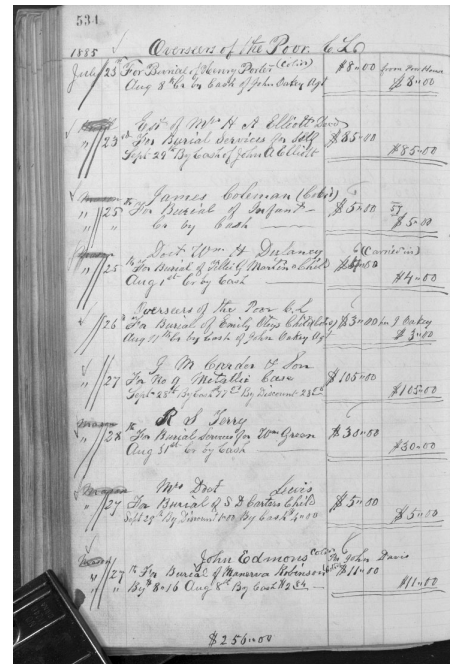 534
1885 Overseers of the Poor C.L.
July 23 For Burial of Henry Porter (Col'd) $8.00 from Poor House
Aug 8th Cr by Cash of John Oakey Agt $8.00
Est of Mrs H A Elliott Dec'd
" 23rd For Burial Services for self $85.00
Sept 29th By Cash of John A Elliott $85.00
James Coleman (Col'd)
" 25th For Burial of Infant $5.00
" " Cr by Cash $5.00
Doct Wm H Dulaney (Carried in)
" 25th For Burial of Child
Aug 1st Cr by Cash $4.00
Overseers of the Poor C.L.
" 26th For Burial of Emily Child (Col'd) $3.00 J Oakey
Aug Cr by Cash of John Oakey Agt $3.00
J. M. Carder & Son
" 27 For No 9 Metallic Case $105.00
Sept 28th By Cash By Discount $105.00
R S Terry
" 28th For Burial Services for Wm Green $30.00
Aug 31st Cr by Cash $30.00
Mrs Doct Lewis
" 27 For Burial of S D Carters Child $5.00
Sept 25th By Discount 1.00 By Cash $4.00 $5.00
John Edmons Col'd John Davis
" 27th For Burial of Manerva Robinson $11.00
By $8.16 Aug 8th By Cash $2.84 $11.00
$256.00